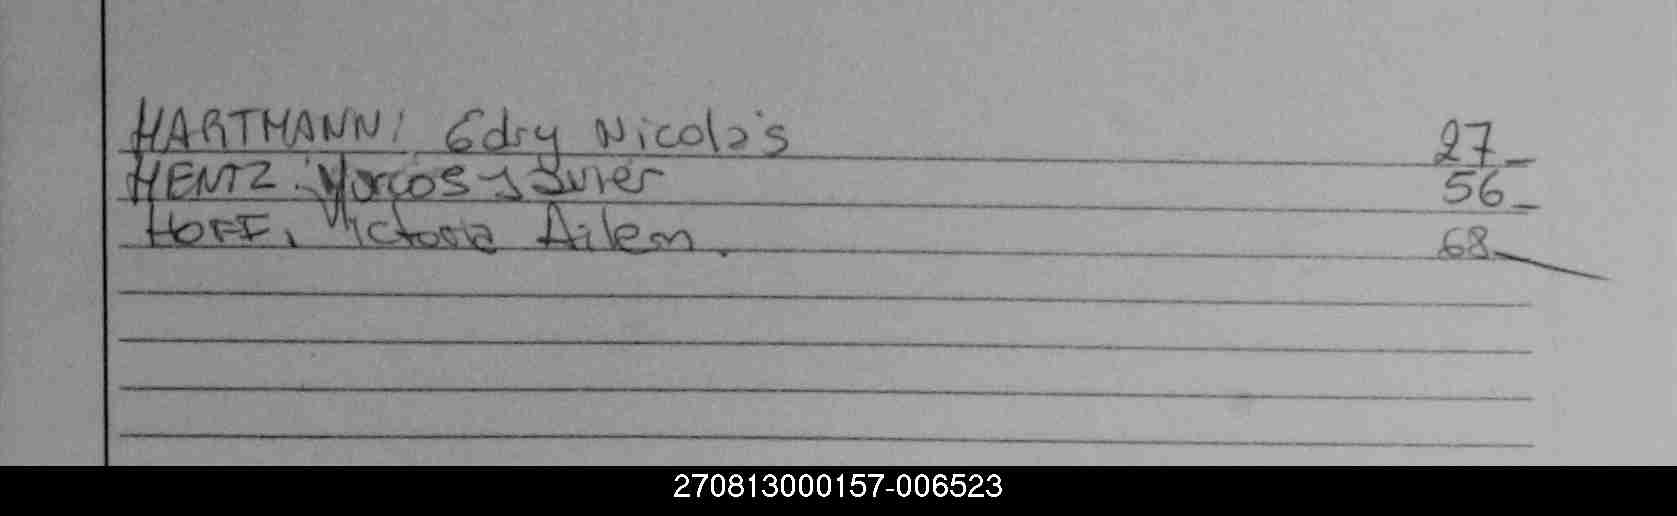 HARTMANN, Edry Nicolás 27
HENTZ. Marcos Javier 56
HOFF, Victoria Ailem. 68
270813000157-006523